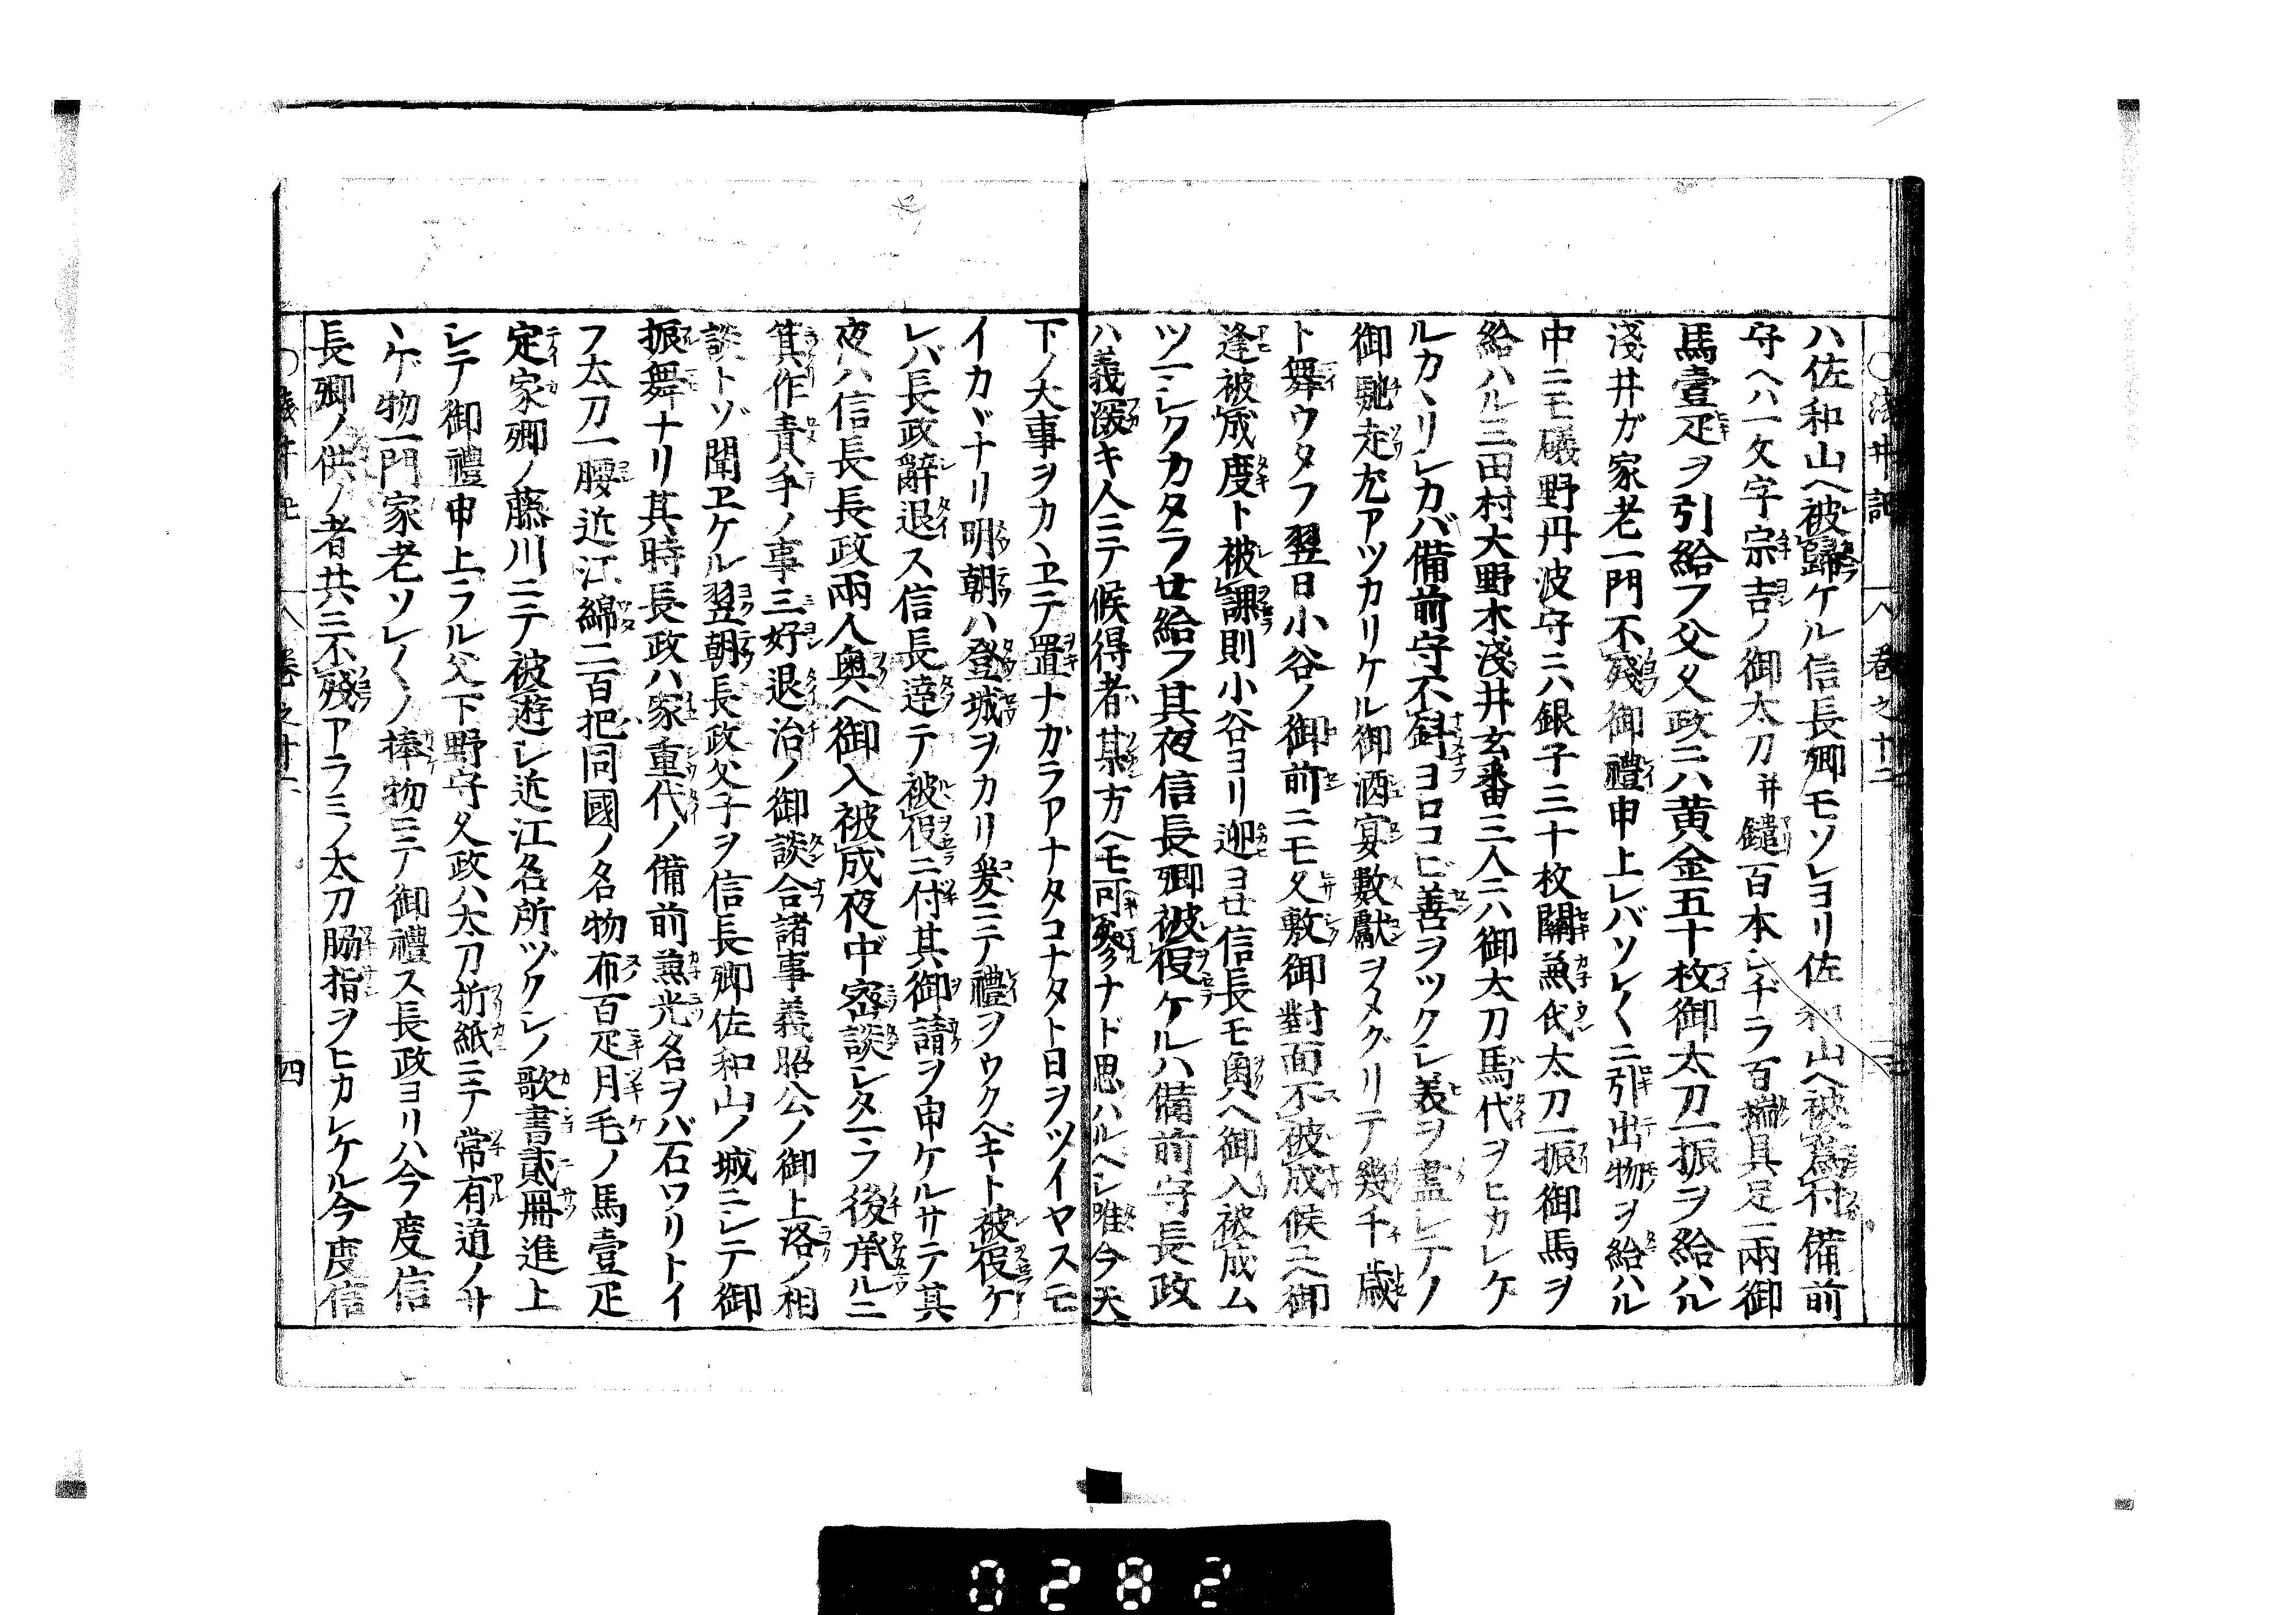 ○淺井記 卷之廿二
ハ佐和山ヘ被歸ケル信長卿モソレヨリ佐和山ヘ被爲付備前
守ヘハ一文字宗吉ノ御太刀并鑓百本シヂラ百端具足一兩御
馬壹疋ヲ引給フ父久政ニハ黄金五十枚御太刀一振ヲ給ハル
淺井ガ家老一門不殘御禮申上レバソレ〱ニ引出物ヲ給ハル
中ニモ礒野丹波守ニハ銀子三十枚關兼代太刀一振御馬ヲ
給ハル三田村大野木淺井玄番三人ニハ御太刀馬代ヲヒカレケ
ルカヽリシカバ備前守不斜ヨロコビ善ヲツクシ義ヲ盡シテノ
御馳走尤アツカリケル御酒宴數獻ヲメグリテ幾千歳
ト舞ウタフ翌日小谷ノ御前ニモ久敷御對面不被成候ヘ御
逢被成度ト被課則小谷ヨリ迎ヨせ信長モ奥ヘ御入被成ム
ツ一シクカタラせ給フ其夜信長卿被役ケルハ備前守長政
ハ義深キ人ニテ候得者某方ヘモ可參ナド思ハルヘシ唯今天
下ノ大事ヲカヽヱテ置ナガラアナタコナタト日ヲツイヤスモ
イカヾナリ明朝ハ登城ヲカリ爰ニテ禮ヲウクベキト被役ケ
レバ長政辭退ス信長達テ被役ニ付其御請ヲ申ケルサテ其
夜ハ信長長政兩人奥ヘ御入被成夜中密談シタマフ後承ルニ
箕作責手ノ事三好退治ノ御談合諸事義昭公ノ御上洛ノ相
談トゾ聞ヱケル翌朝長政父子ヲ信長卿佐和山ノ城ニシテ御
振舞ナリ其時長政ハ家重代ノ備前兼光名ヲバ石ワリトイ
フ太刀一腰近江綿二百把同國ノ名物布百疋月毛ノ馬壹疋
定家卿ノ藤川ニテ被遊シ近江名所ヅクシノ歌書貳冊進上
シテ御禮申上ラル父下野守久政ハ太刀折紙ニテ常有道ノサ
ヽゲ物一門家老ソレ〱ノ捧物ニテ御禮ス長政ヨリハ今度信
長卿ノ供ノ者共ニ不殘アラミノ太刀脇指ヲヒカレケル今度信
卷之廿二 四
0282